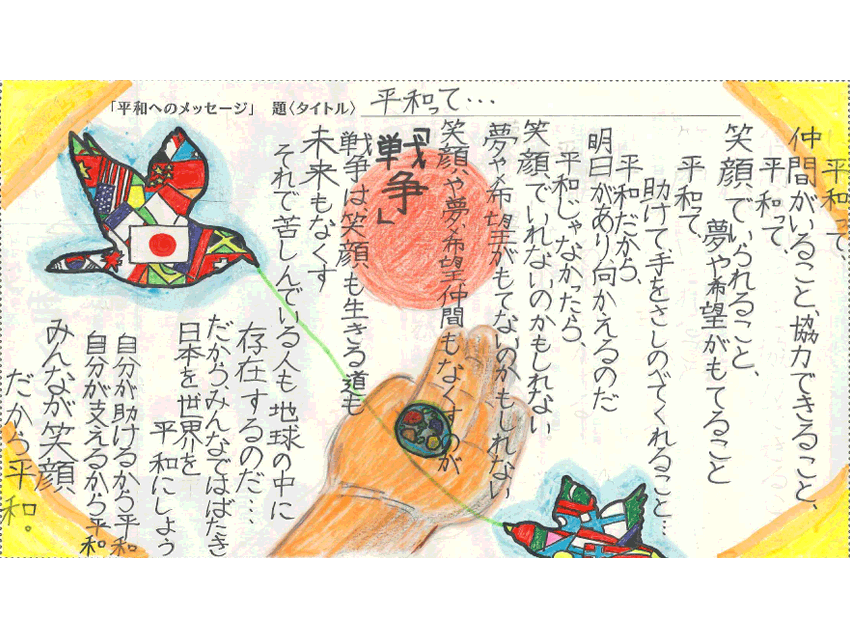 「平和へのメッセージ」 題〈タイトル〉 平和って…
平和って、
仲間がいること、協力できること、
平和って、
笑顔でいられること、
夢や希望がもてること
平和って、
助けて、手をさしのべてくれること…
平和だから、
明日があり、向かえるのだ
平和じゃなかったら、
笑顔でいれないのかもしれない
夢や希望がもてないのかもしれない
笑顔や夢、希望、仲間もなくすのが
「戦争」
戦争は、笑顔も生きる道も
未来もなくす
それで苦しんでいる人も地球の中に
存在するのだ…
だから、みんなではばたき
日本を世界を
平和にしよう
自分が助けるから平和
自分が支えるから平和
みんなが笑顔、
だから平和。